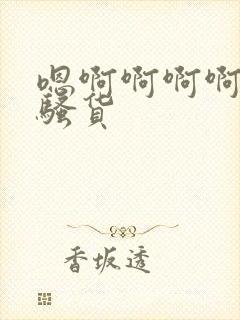 嗯啊啊啊啊
骚货
香坂透